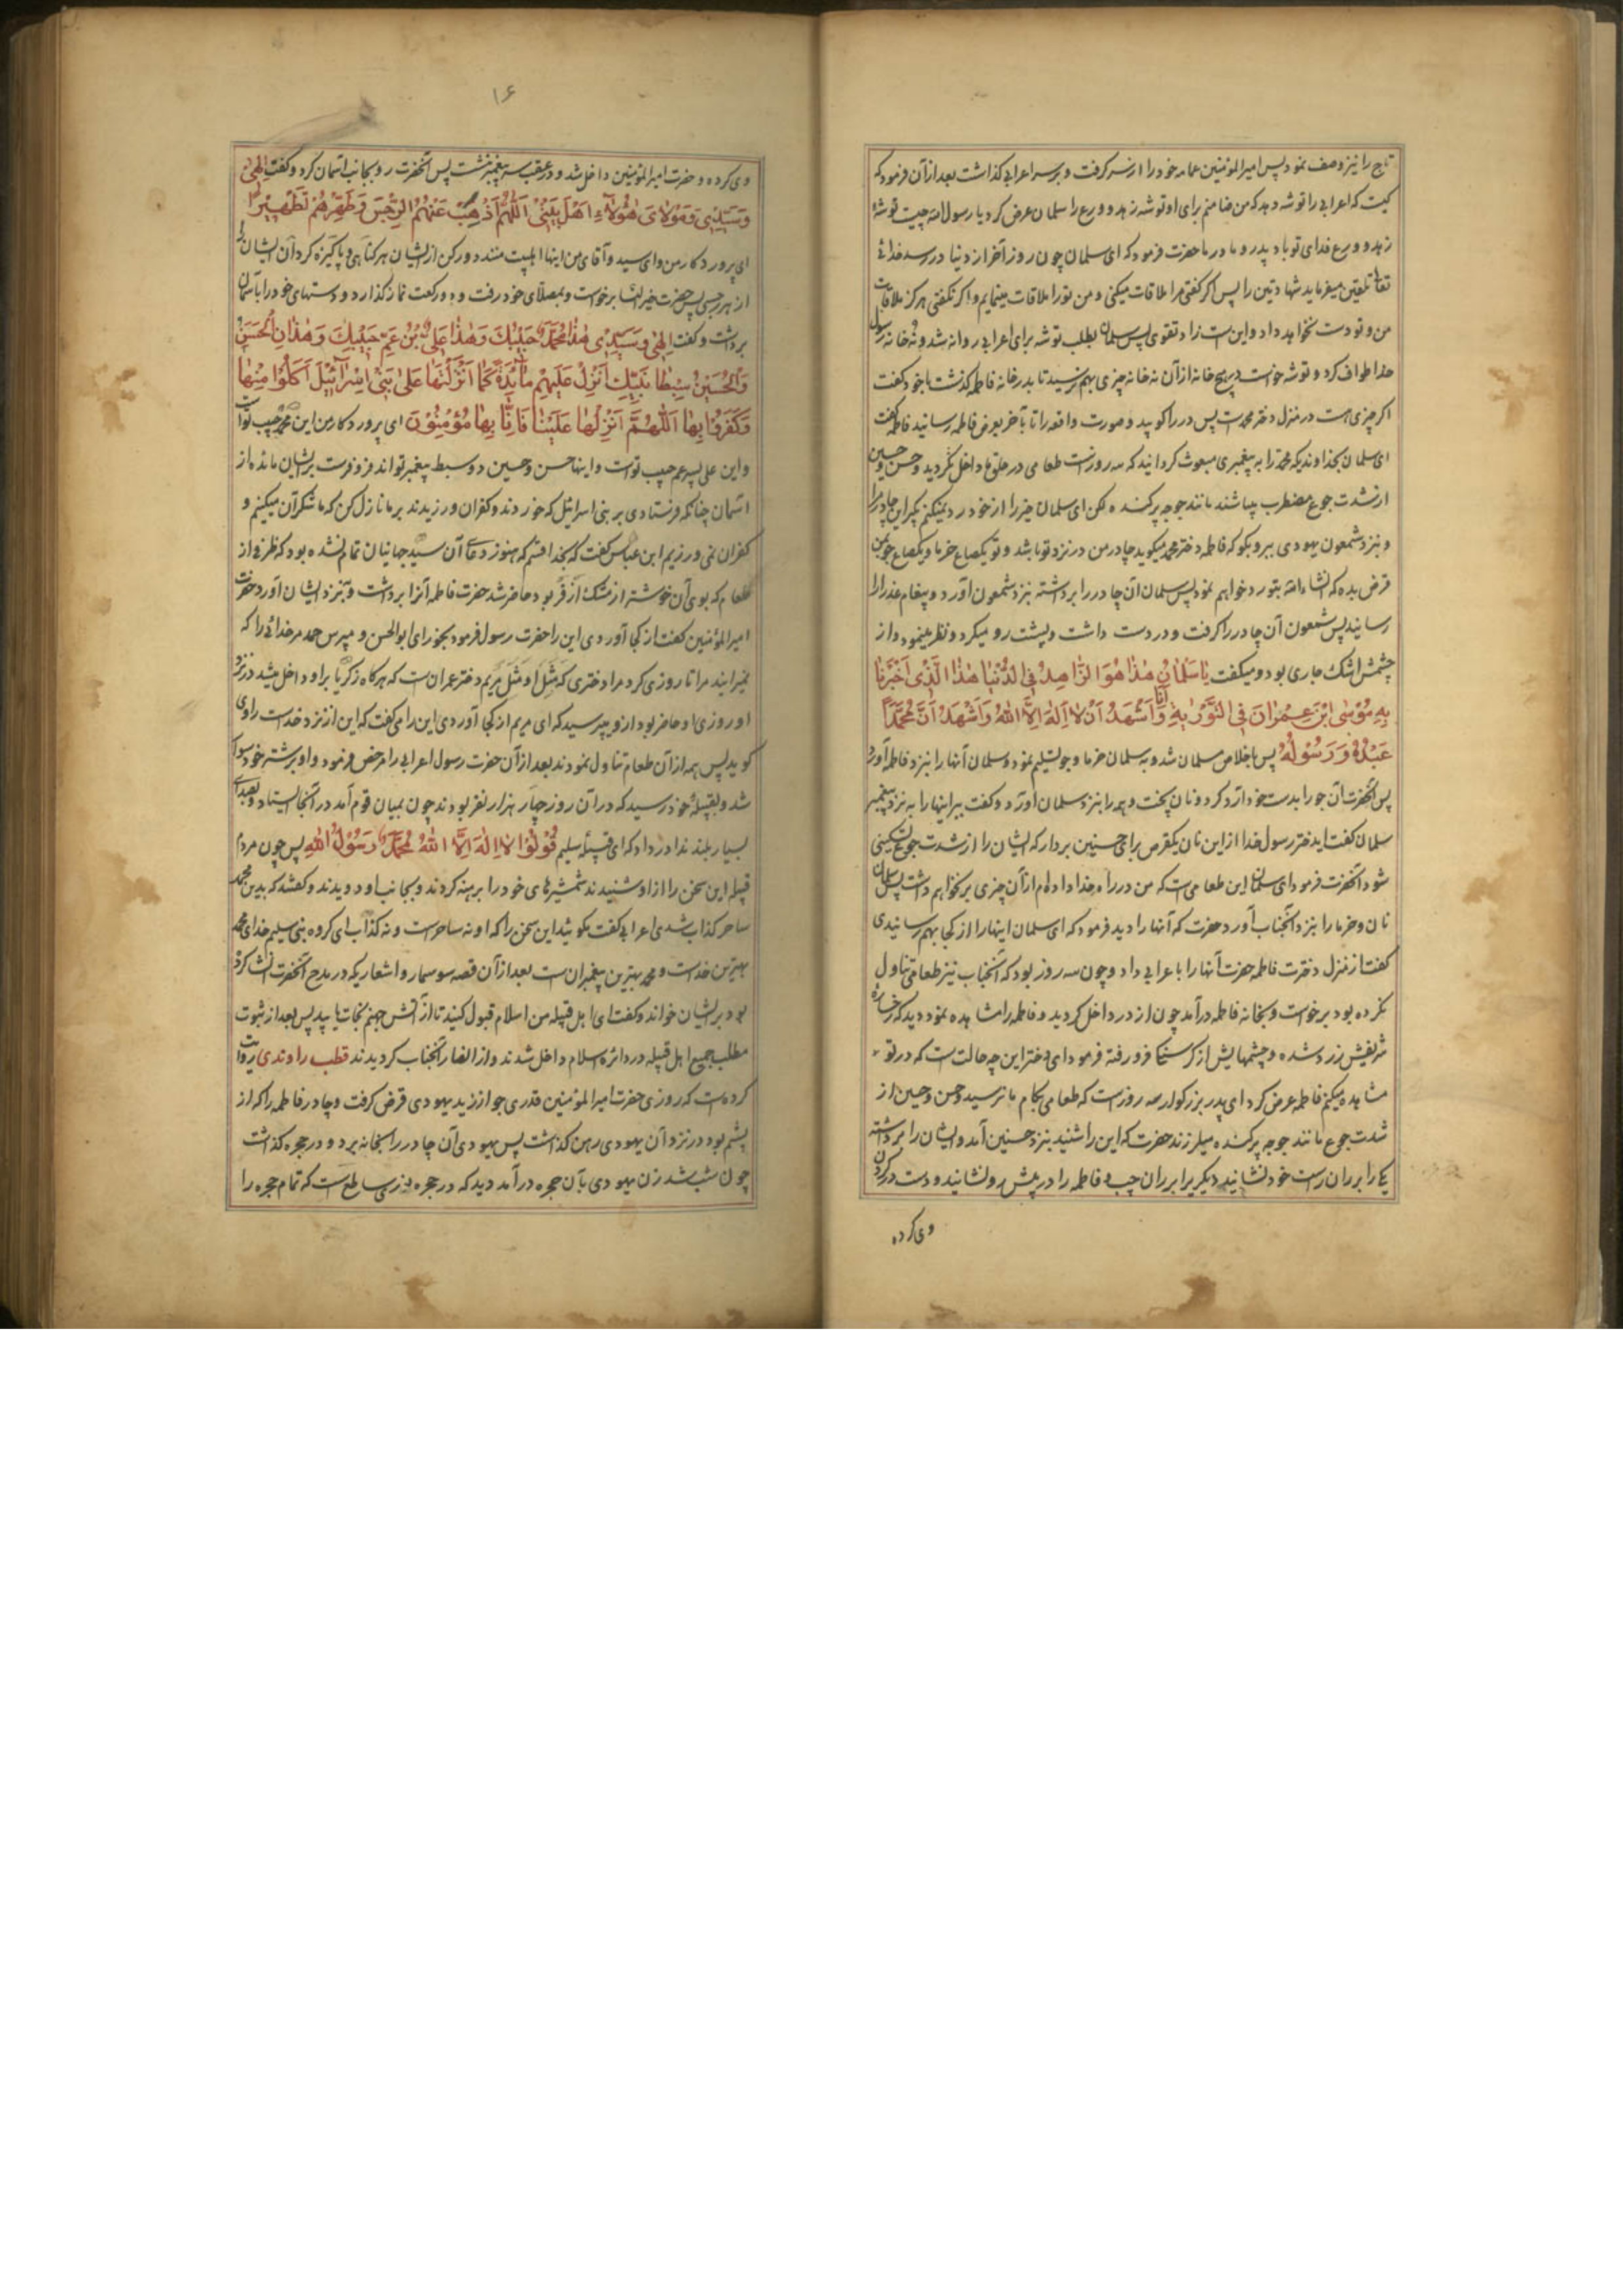 تاج را نیز وصف نمود پس امیرالمؤمنین عمامه خود را از سر گرفت و بر سر اعرابی گذاشت بعد از آن فرمود که
کیست که اعرابی را توشه دهد که من ضامنم برای او توشه زهد و ورع را سلمان عرض کرد یا رسول الله چیست توشهٔ
زهد و ورع فدای تو باد پدر و مادر ما حضرت فرمود که ای سلمان چون روز آخر از دنیا در رسد خدای
تعالی تلقین میفرماید شهادتین را پس اگر گفتی مرا ملاقات میکنی و من تو را ملاقات مینمایم و اگر نگفتی هرگز ملاقات
من و تو دست نخواهد داد و این است زاد تقوی پس سلمان بطلب توشه برای اعرابی روانه شد و نه خانه رسول
خدا طواف کرد و توشه خواست در هیچ خانه از آن نه خانه چیزی بهم نرسید تا بدر خانه فاطمه گذشت با خود گفت
اگر چیزی هست در منزل دختر محمد است پس در را کوبید و صورت واقعه را تا بآخر بعرض فاطمه رسانید فاطمه گفت
ای سلمان بخداوندیکه محمد را به پیغمبری مبعوث گردانید که سه روز است طعامی در حلق ما داخل نگردید و حسن و حسین
از شدت جوع مضطرب میباشند مانند جوجه پرکنده لکن ای سلمان خیر را از خود رد نمیکنم بگیر این چادر مرا
و بنزد شمعون یهودی ببر و بگو که فاطمه دختر محمد میگوید چادر من در نزد تو باشد و تو یکصاع خرما و یکصاع جو بمن
قرض بده که انشاء الله بتو رد خواهم نمود پس سلمان آن چادر را برداشته بنزد شمعون آورد و پیغام عذرا را
رسانید پس شمعون آن چادر را گرفت و در دست داشت و پشت رو میکرد و نظر مینمود و از
چشمش اشک جاری بود و میگفت یا سَلمانُ هٰذا هُوَ الزّاهِدُ فِی الدُّنْیا هٰذا الَّذی اَخْبَرَنا
بِهِ مُوْسَی ابْنُ عِمْرانَ فِی التَّوْرٰیةِ وَ اَنَا اَشْهَدُ اَنْ لا اِلٰهَ اِلَّا اللّٰهُ وَ اَشْهَدُ اَنَّ مُحَمَّداً
عَبْدُهُ وَ رَسُوْلُهُ پس با خلاص مسلمان شد و به سلمان خرما و جو تسلیم نمود و سلمان آنها را بنزد فاطمه آورد
پس آنحضرت آن جو را بدست خود آرد کرد و نان پخت و همه را بنزد سلمان آورد و گفت ببر اینها را به نزد پیغمبر
سلمان گفت ایدختر رسول خدا از این نان یکقرص برای حسنین بردار که ایشان را از شدت جوع تسکینی
شود آنحضرت فرمود ای سلمان این طعامی است که من در راه خدا داده‌ام از آن چیزی بر نخواهم داشت پس سلمان
نان و خرما را بنزد آنجناب آورد حضرت که آنها را دید فرمود که ای سلمان اینها را از کجا بهم رسانیدی
گفت از منزل دخترت فاطمه حضرت آنها را باعرابی داد و چون سه روز بود که آنجناب نیز طعامی تناول
نکرده بود برخواست و بخانه فاطمه درآمد چون از در داخل گردید و فاطمه را مشاهده نمود دید که رخسارهٔ
شریفش زرد شده و چشمهایش از گرسنگی فرو رفته فرمود ای دختر این چه حالت است که در تو
مشاهده میکنم فاطمه عرض کرد ای پدر بزرگوار سه روز است که طعامی بکام ما نرسید و حسن و حسین از
شدت جوع مانند جوجه پرکنده میلرزند حضرت که این را شنید بنزد حسنین آمد و ایشان را برداشته
یکی را بر ران راست خود نشانید و دیگریرا بر ران چپ و فاطمه را در پیش رو نشانید و دست در گردن
وی کرده
۱۶
وی کرده و حضرت امیرالمؤمنین داخل شد و در عقب سر پیغمبر نشست پس آنحضرت رو بجانب آسمان کرد و گفت اِلٰهی
وَ سَیِّدِیْ وَ مَوْلایَ هٰؤُلاءِ اَهْلُ بَیْتِیْ اَللّٰهُمَّ اَذْهِبْ عَنْهُمُ الرِّجْسَ وَ طَهِّرْهُمْ تَطْهِیْراً
ای پروردگار من و ای سید و آقای من اینها اهلبیت منند دور کن از ایشان هر گناهی و پاکیزه گردان ایشان را
از هر رجسی پس حضرت خیرالنسا برخواست و بمصلای خود رفت و دو رکعت نماز گذارد و دستهای خود را بآسمان
برداشت و گفت اِلٰهی وَ سَیِّدِیْ هٰذا مُحَمَّدٌ حَبِیْبُكَ وَ هٰذا عَلِیُّ بْنُ عَمِّ حَبِیْبِكَ وَ هٰذانِ الْحَسَنُ
وَ الْحُسَیْنُ سِبْطا نَبِیِّكَ اَنْزِلْ عَلَیْهِمْ مائِدَةً کَما اَنْزَلْتَها عَلیٰ بَنِیْ اِسْرآئِیْلَ اَکَلُوْا مِنْها
وَ کَفَرُوْا بِها اَللّٰهُمَّ اَنْزِلْها عَلَیْنا فَاِنّا بِها مُؤْمِنُوْنَ ای پروردگار من این محمد حبیب تو است
و این علی پسر عم حبیب توست و اینها حسن و حسین دو سبط پیغمبر تواند فرو فرست بر ایشان مائده از
آسمان چنانکه فرستادی بر بنی اسرائیل که خوردند و کفران ورزیدند بر ما نازل کن که ما شکر آن میکنیم و
کفران نمی ورزیم ابن عباس گفت که بخدا قسم که هنوز دعای آن سید جهانیان تمام نشده بود که ظرفی از
طعام که بوی آن خوشتر از مشک اذفر بود حاضر شد حضرت فاطمه آنرا برداشت و بنزد ایشان آورد حضرت
امیرالمؤمنین گفت از کجا آوردی این را حضرت رسول فرمود بخور ای ابوالحسن و مپرس حمد مر خدائی را که
نمیرانید مرا تا روزی کرد مرا دختری که مَثَل او مَثَل مریم دختر عمران است که هرگاه زکریا بر او داخل میشد در نزد
او روزی او حاضر بود از وی میپرسید که ای مریم از کجا آوردی این را می‌گفت که این از نزد خداست راوی
گوید پس همه از آن طعام تناول نمودند بعد از آن حضرت رسول اعرابی را مرخص فرمود و او بر شتر خود سوار
شد و بقبیلهٔ خود رسید که در آن روز چهار هزار نفر بودند چون بمیان قوم آمد در آنجا ایستاد و بصدای
بسیار بلند ندا در داد که ای قبیله سلیم قُوْلُوْا لا اِلٰهَ اِلَّا اللّٰهُ مُحَمَّدٌ رَسُوْلُ اللّٰهِ پس چون مردم
قبیله این سخن را از او شنیدند شمشیرهای خود را برهنه کردند و بجانب او دویدند و گفتند که بدین محمد
ساحر کذاب شدی اعرابی گفت مگوئید این سخن را که او نه ساحر است و نه کذاب ای گروه بنی سلیم خدای محمد
بهترین خداست و محمد بهترین پیغمبران است بعد از آن قصه سوسمار و اشعاریکه در مدح آنحضرت انشا کرده
بود بر ایشان خواند و گفت ای اهل قبیله من اسلام قبول کنید تا از آتش جهنم نجات یابید پس بعد از ثبوت
مطلب جمیع اهل قبیله در دائره اسلام داخل شدند و از انصار آنجناب گردیدند قطب راوندی روایت
کرده است که روزی حضرت امیرالمؤمنین قدری جو از زید یهودی قرض گرفت و چادر فاطمه را که از
پشم بود در نزد آن یهودی رهن گذاشت پس یهودی آن چادر را بخانه برد و در حجره گذاشت
چون شب شد زن یهودی بآن حجره درآمد دید که در حجره نوری ساطع است که تمام حجره را